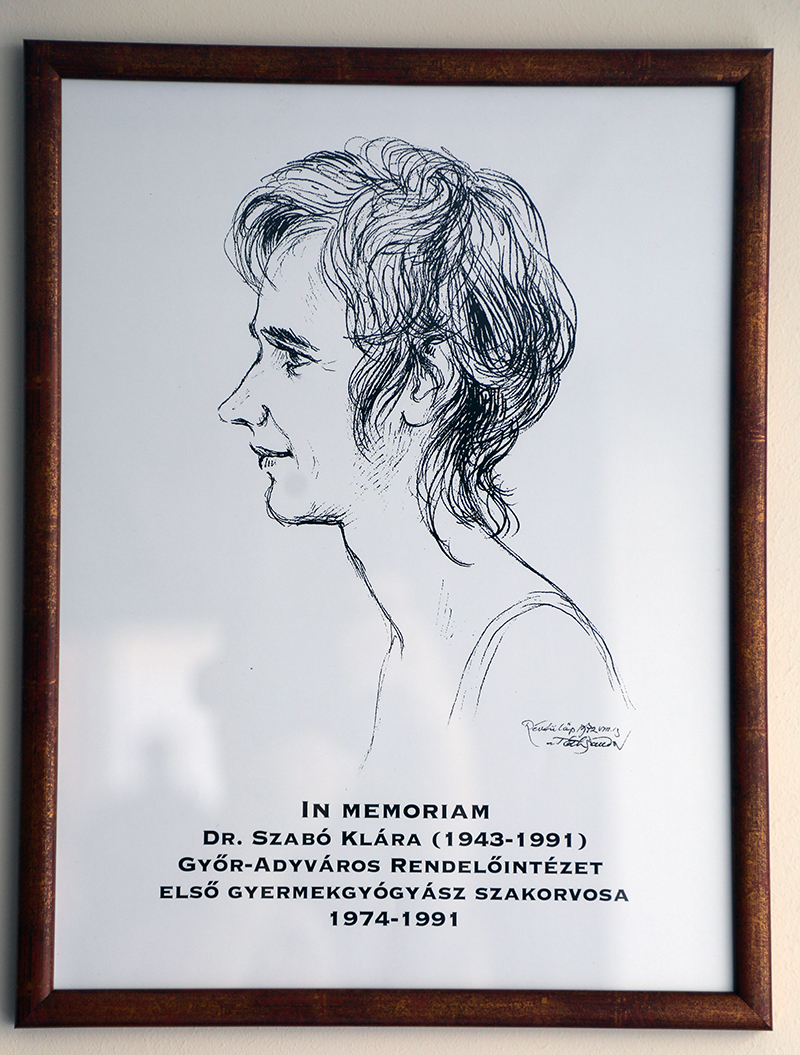 Révfülöp 1972 VIII. 13
Tóth Sándor
IN MEMORIAM
DR. SZABÓ KLÁRA (1943-1991)
GYŐR-ADYVÁROS RENDELŐINTÉZET
ELSŐ GYERMEKGYÓGYÁSZ SZAKORVOSA
1974-1991